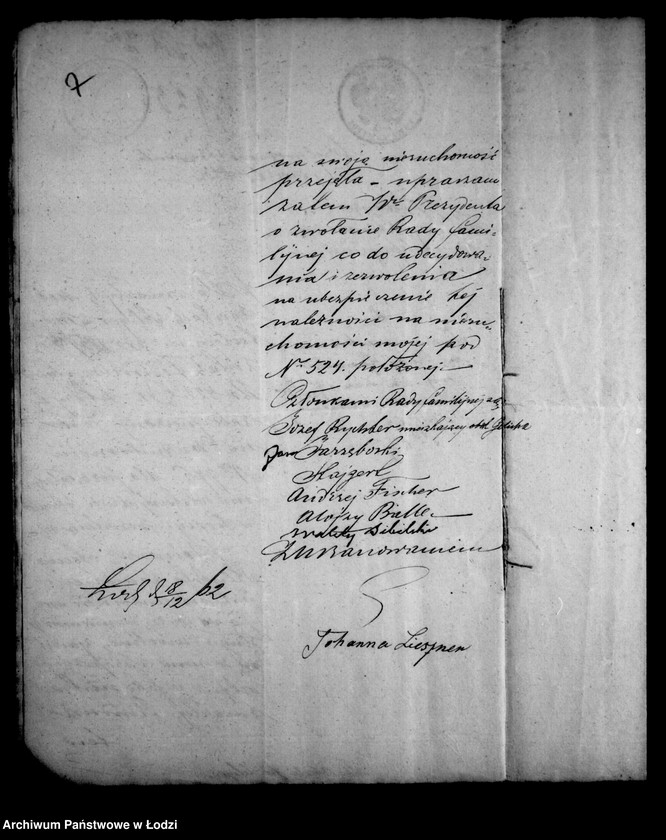 7
na moją nieruchomość
przejęła – upraszam
zatem Wº Prezydenta
o zwołanie Rady fami-
lijnej co do udecydowa-
nia i zezwolenia
na ubezpieczenie tej
należności na nieru-
chomości mojej pod
Nº 524. położonej.–
Członkami Rady familijnej są
Józef Rychter mieszkający obok
Jan Jarzęboski
Hajzerl
Andrzej Fischer
Alojzy Balle
Walęty
Z Uszanowaniem
Łódź d 18/12 62
Johanna
Archiwum Państwowe w Łodzi